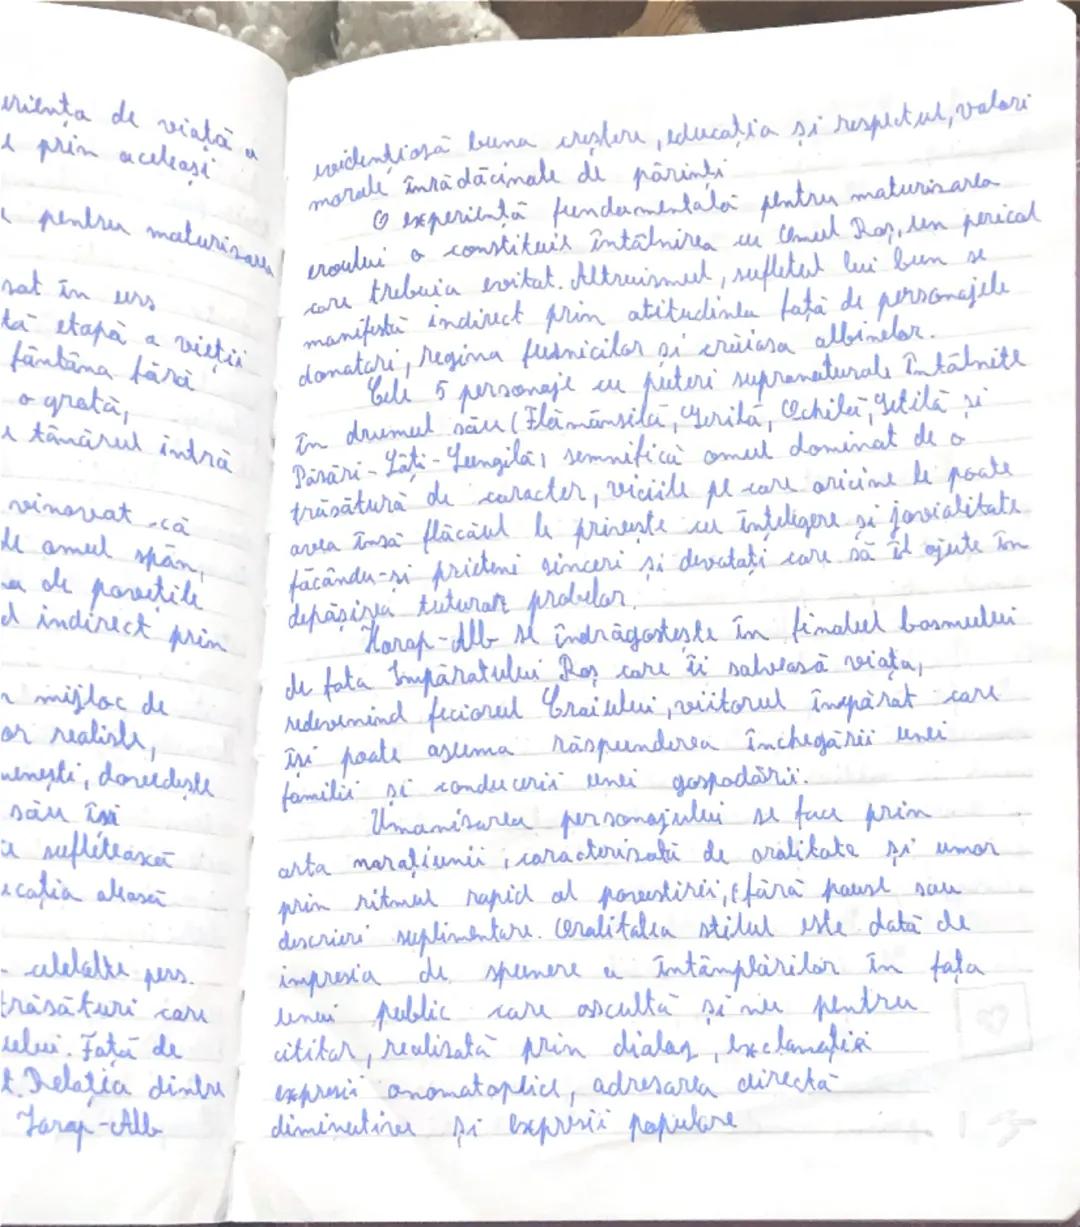 eriența de viață a
e prin aceleași
pentru maturizarea
sat în urs
tă etapă a vieții
fântâna fără
o grată,
e tânărul intră
vinovat că
de omul spân,
ea de povețile
d indirect prin
n mijloc de
or realiste,
menești, dovedește
său își
a sufletească
ecația aleasă
- celelalte pers.
trăsături care
ului. Față de
t. Relația dintre
Harap-Alb
evidențiază buna creștere, educația și respectul, valori
morale înrădăcinate de părinți
O experiență fundamentală pentru maturizarea
eroului a constituit întâlnirea cu Omul Roș, un pericol
care trebuia evitat. Altruismul, sufletul lui bun se
manifestă indirect prin atitudinea față de personajele
donatori, regina furnicilor și crăiasa albinelor.
Cele 5 personaje cu puteri supranaturale întâlnite
în drumul său (Flămânzilă, Gerilă, Ochilă, Setilă și
Păsări-Lăți-Lungilă) semnifică omul dominat de o
trăsătură de caracter, viciile pe care oricine le poate
avea însă flăcăul le privește cu înțelegere și jovialitate
făcându-și prieteni sinceri și devotați care să îl ajute în
depășirea tuturor probelor.
Harap-Alb se îndrăgostește în finalul basmului
de fata Împăratului Roș care îi salvează viața,
redevenind feciorul Craiului, viitorul împărat care
își poate asuma răspunderea închegării unei
familii și conducerii unei gospodării.
Umanizarea personajului se face prin
arta narațiunii, caracterizată de oralitate și umor
prin ritmul rapid al povestirii, (fără pauze sau
descrieri suplimentare. Oralitatea stilul este dată de
impresia de spunere a întâmplărilor în fața
unui public care ascultă și nu pentru
cititor, realizată prin dialog, exclamații
expresii onomatopeice, adresarea directă
diminutive și expresii populare